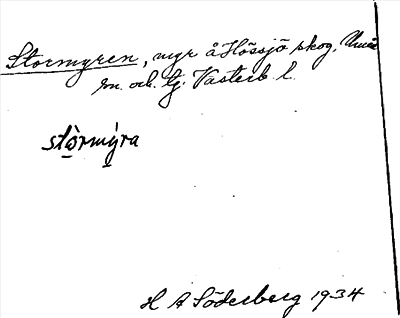 Stormyren, myr å Hössjö skog, Umeå
sn. och tg. Västerb. l.
stòrmýra
H A Söderberg 1934